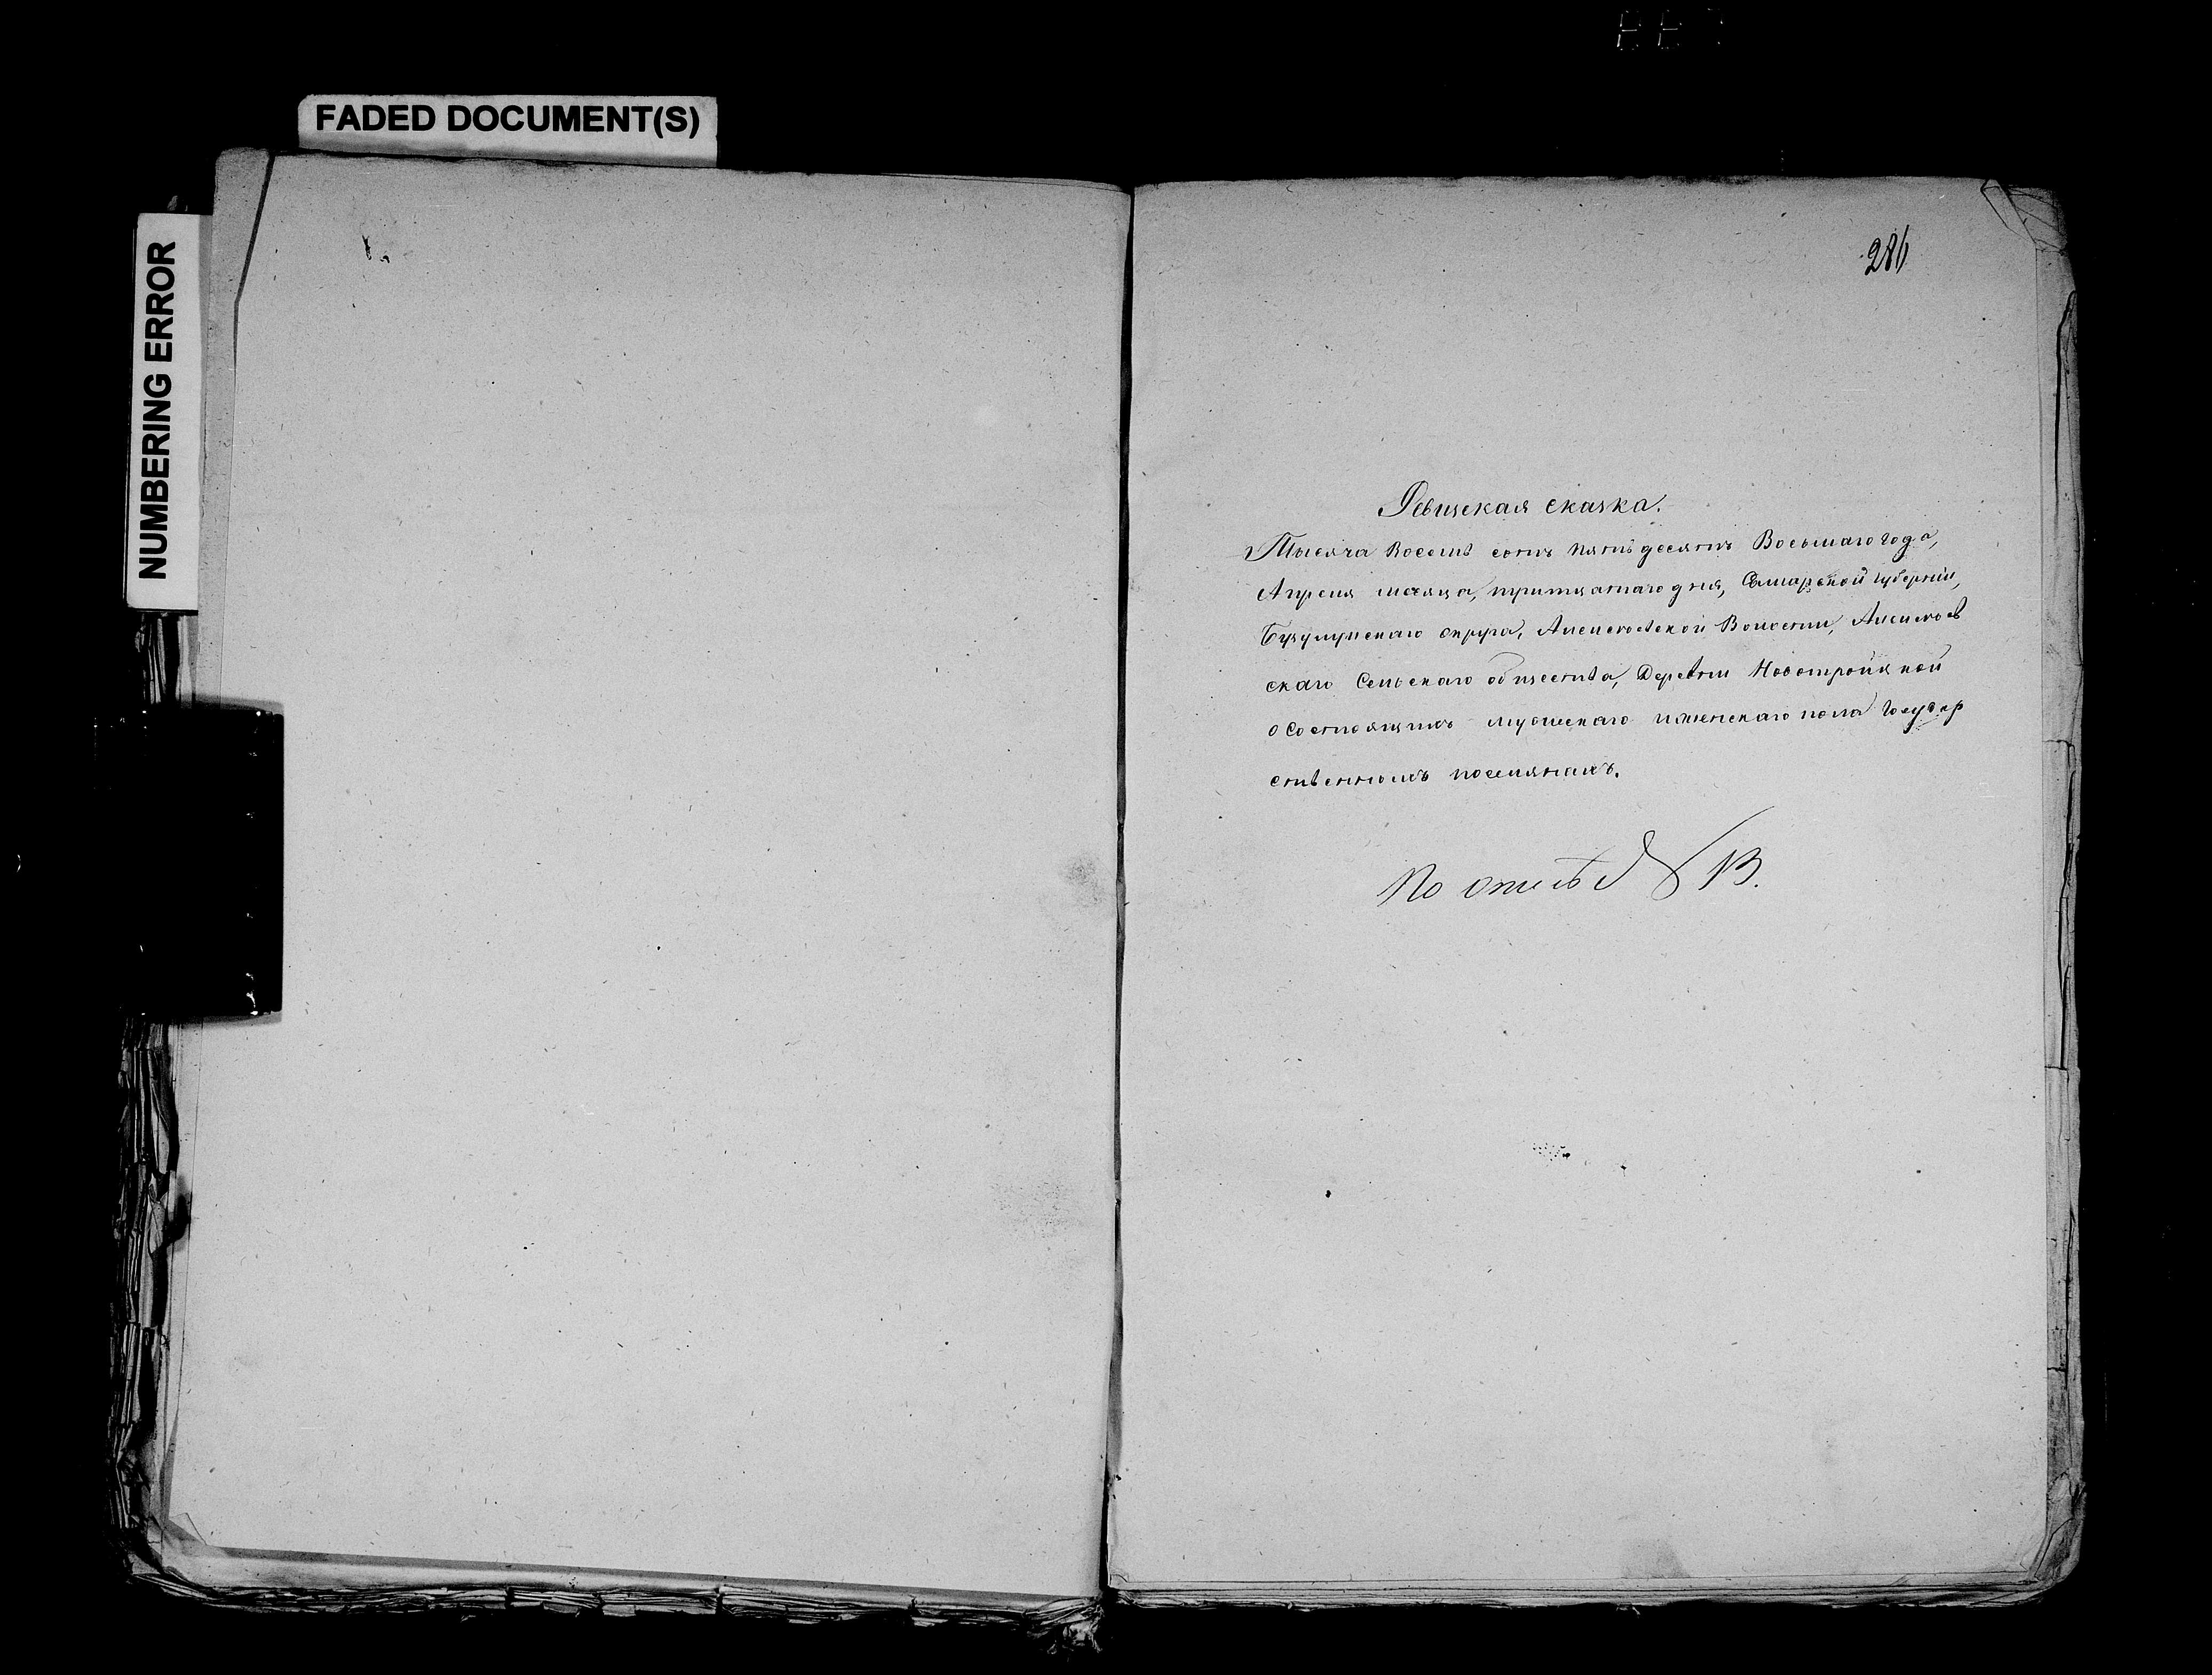 FADED DOCUMENT(S)
NUMBERING ERROR
286
Ревизская сказка.
Тысяча Восемь сотъ пятьдесятъ Восьмаго года,
Апреля месяца, тритцатаго дня, Самарской губерніи,
Бузулукскаго округа, Волости,
скаго Сельскаго общества, Деревни Новотройцкой
о состоящихъ мужескаго и женскаго пола Государ
ственныхъ поселянахъ.
По описи № 13.